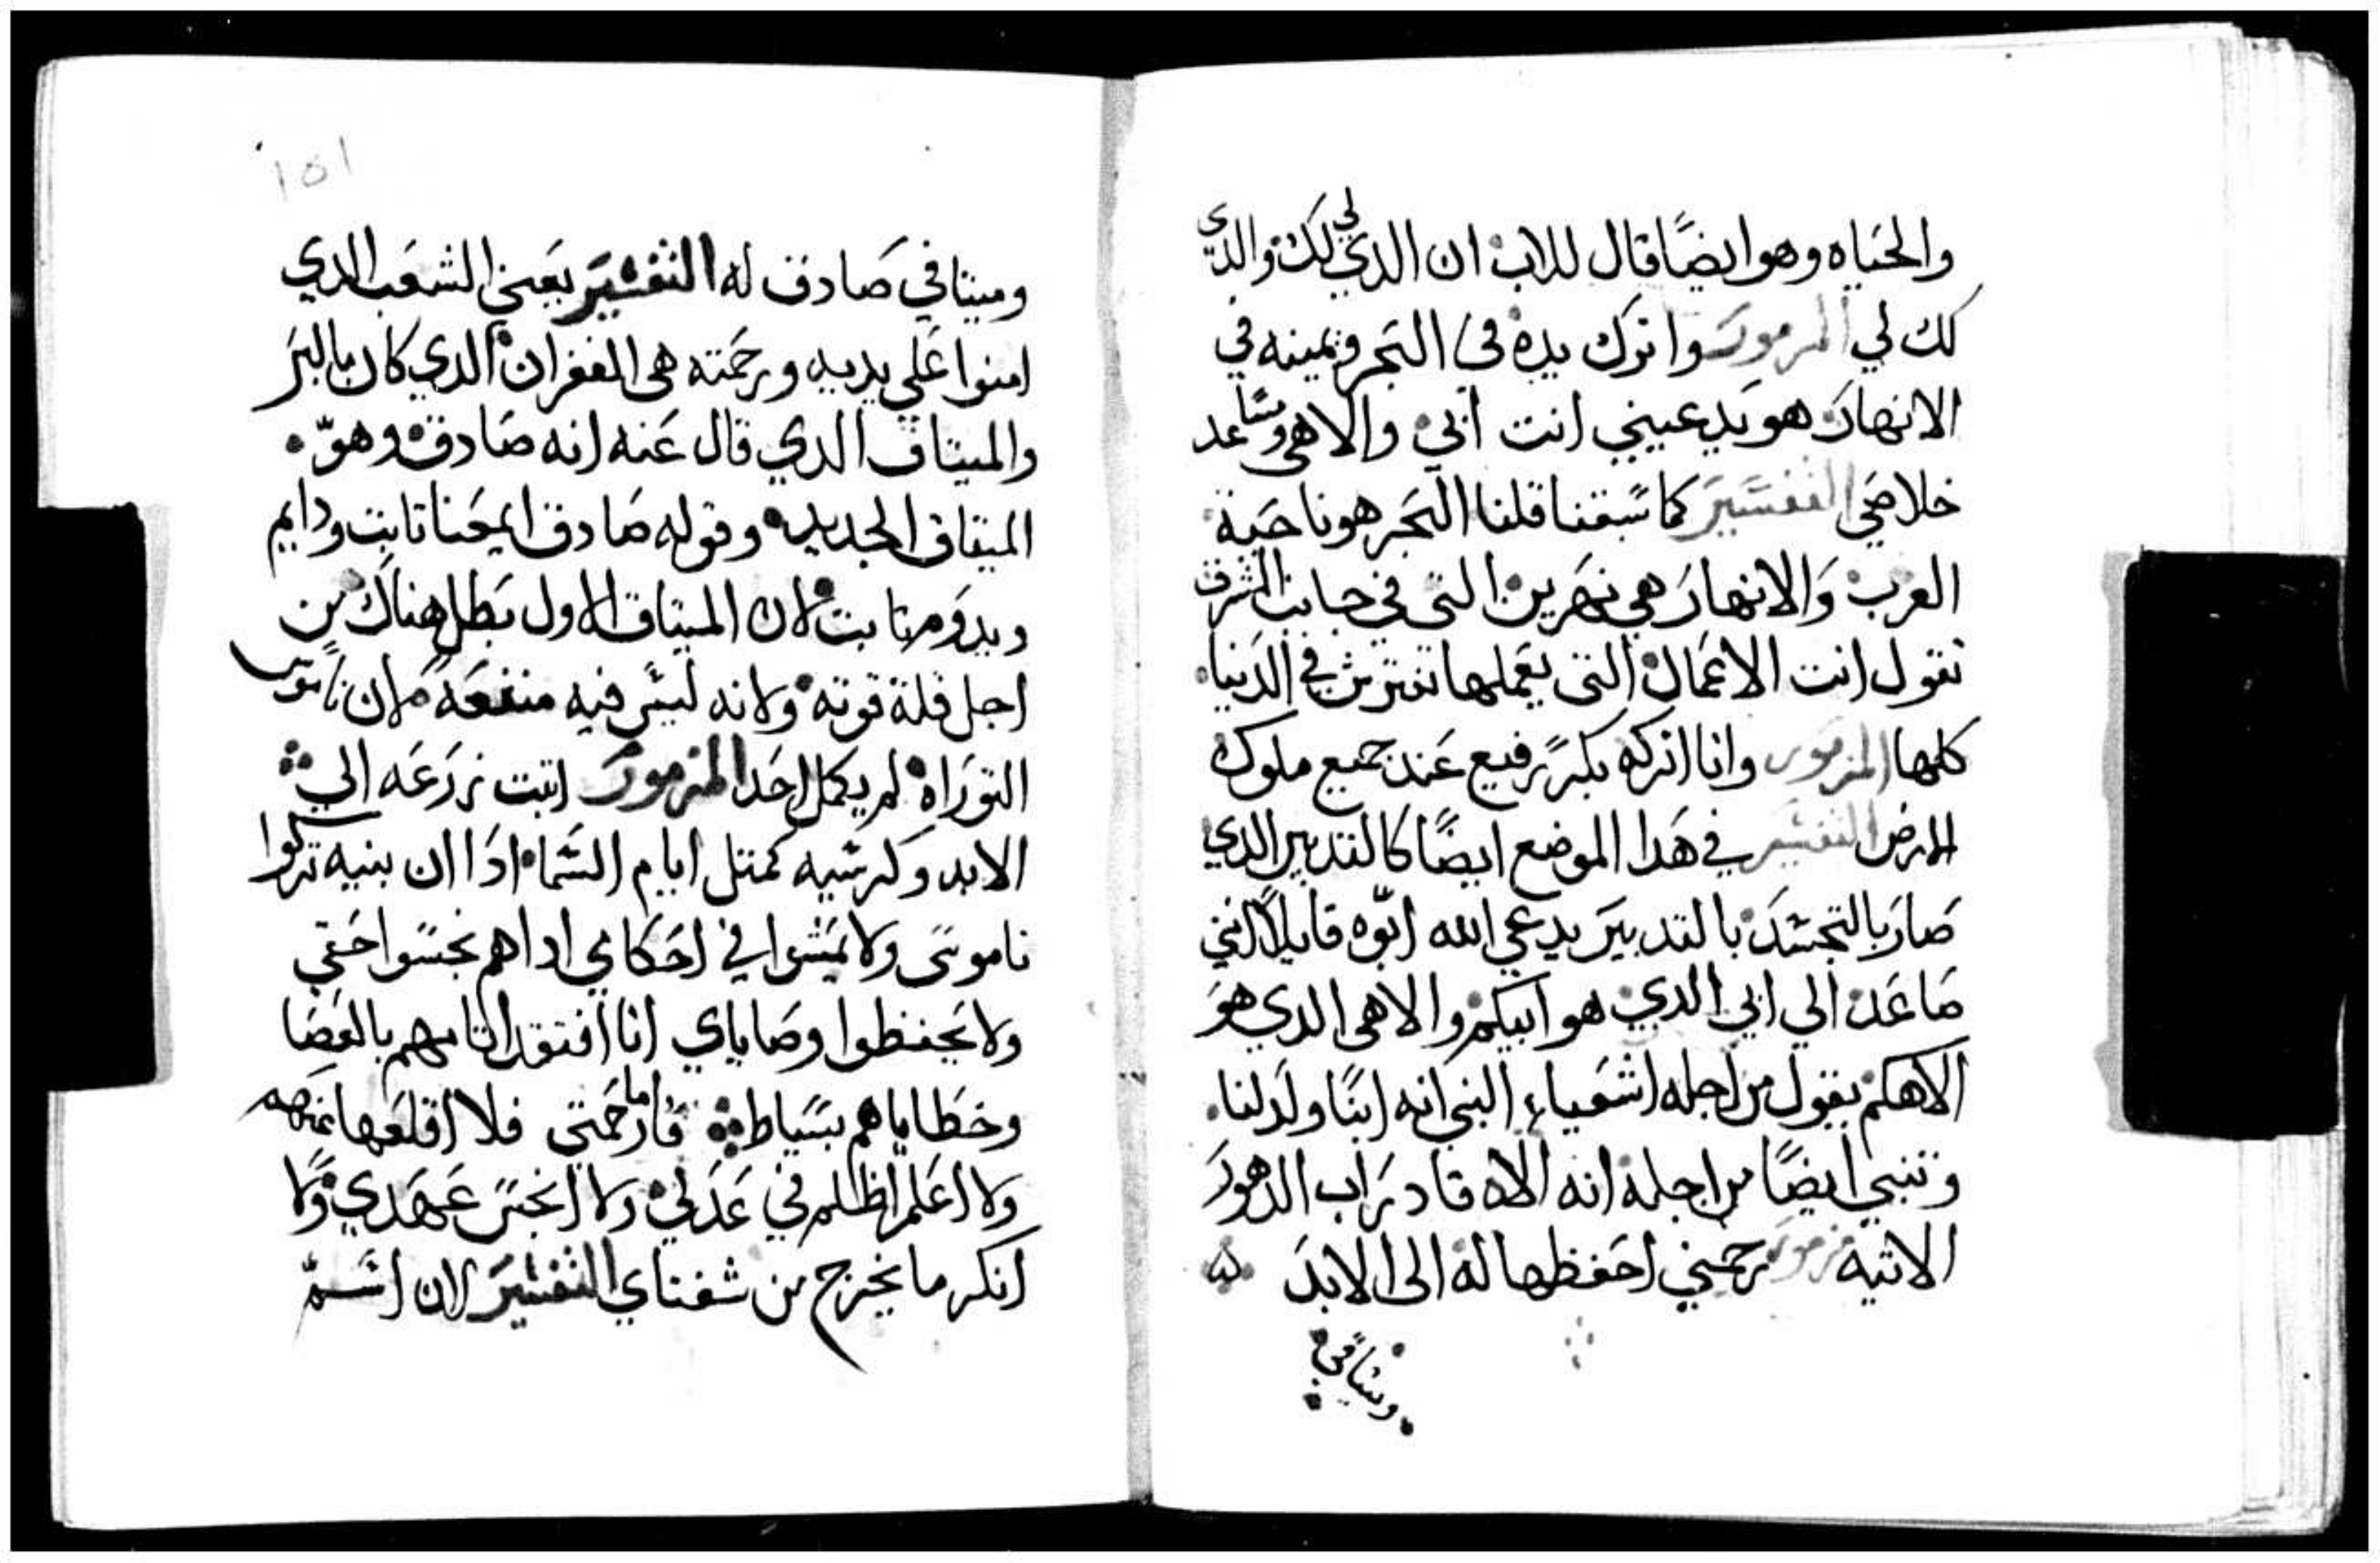 والحياه وهو ايضًا قال للاب ان الدي لي لك والدي
لك لي المزمور واترك يده في البحر ويمينه في
الانهار هو يدعيني انت ابي والاهي وساعد
خلاصي التفسير كما سبقنا قلنا البحر هو ناحية
الغرب والانهار هي نهرين التي في جانب الشرق
تقول انت الاعمال التي يعملها تفترش في الدنيا
كلها المزمور وانا اتركه بكرً رفيع عند جميع ملوك
الارض التفسير في هدا الموضع ايضًا كالتدبير الدي
صار بالتجسد بالتدبير يدعي الله ابوّه قايلًا انني
صاعد الي ابي الدي هو ابيكم والاهي الدي هو
الاهكم يقول من اجله اشعياء النبي انه ابنًا ولد لنا
وتنبي ايضًا من اجله انه الاه قادر اب الدهور
الاتيه مزمور رحمتي احفظها له الى الابد
وميتاقي
١٥١
وميتاقي صادق له التفسير يعني الشعب الدي
امنوا علي يديه ورحمته هي الغفران الدي كان بالبر
والميتاق الدي قال عنه انه صادق وهوّ
الميتاق الجديد وقوله صادق ايمعنا تابت ودايم
ويدوم تابت لان الميتاق الاول بطل هناك من
اجل قلة قوته ولانه ليس فيه منفعه لان ناموس
التوراه لم يكمل احد المزمور اتبت زرعه الي
الابد وكرسيه كمتل ايام السما ادا ان بنيه تركوا
ناموسي ولا يمشوا في احكامي ادا هم نجسوا حقي
ولا يحفظوا وصاياي انا افتقد اتامهم بالعصا
وخطاياهم بسياط فاما رحمتي فلا اقلعها عنهم
ولا اعلم اظلم في عدلي ولا انجس عهدي ولا
انكر ما يخرج من شفتاي التفسير لان اسمّ